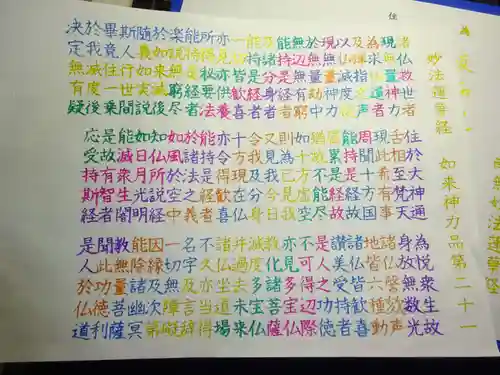 妙法蓮華経 如来神力品第二十一
仏救世者 住於大神通 為悦衆生故
現無量神力 舌相至梵天 身放無数光
為求仏道者 現此希有事 諸仏謦欬声
及弾指之声 周聞十方国 地皆六種動
以仏滅度後 能持是経故 諸仏皆歓喜
現無量神力 嘱累是経故 讃美受持者
於無量劫中 猶故不能尽 是人之功徳
無辺無有窮 如十方虚空 不可得辺際
能持是経者 則為已見我 亦見多宝仏
及諸分身者 又見我今日 教化諸菩薩
能持是経者 令我及分身 滅度多宝仏
一切皆歓喜 十方現在仏 并過去未来
亦見亦供養 亦令得歓喜 諸仏坐道場
所得秘要法 能持是経者 不久亦当得
能持是経者 於諸法之義 名字及言辞
楽説無窮尽 如風於空中 一切無障礙
於如来滅後 知仏所説経 因縁及次第
隨義如実説 如日月光明 能除諸幽冥
斯人行世間 能滅衆生闇 教無量菩薩
畢竟住一乗 是故有智者 聞此功徳利
於我滅度後 応受持斯経 是人於仏道
決定無有疑